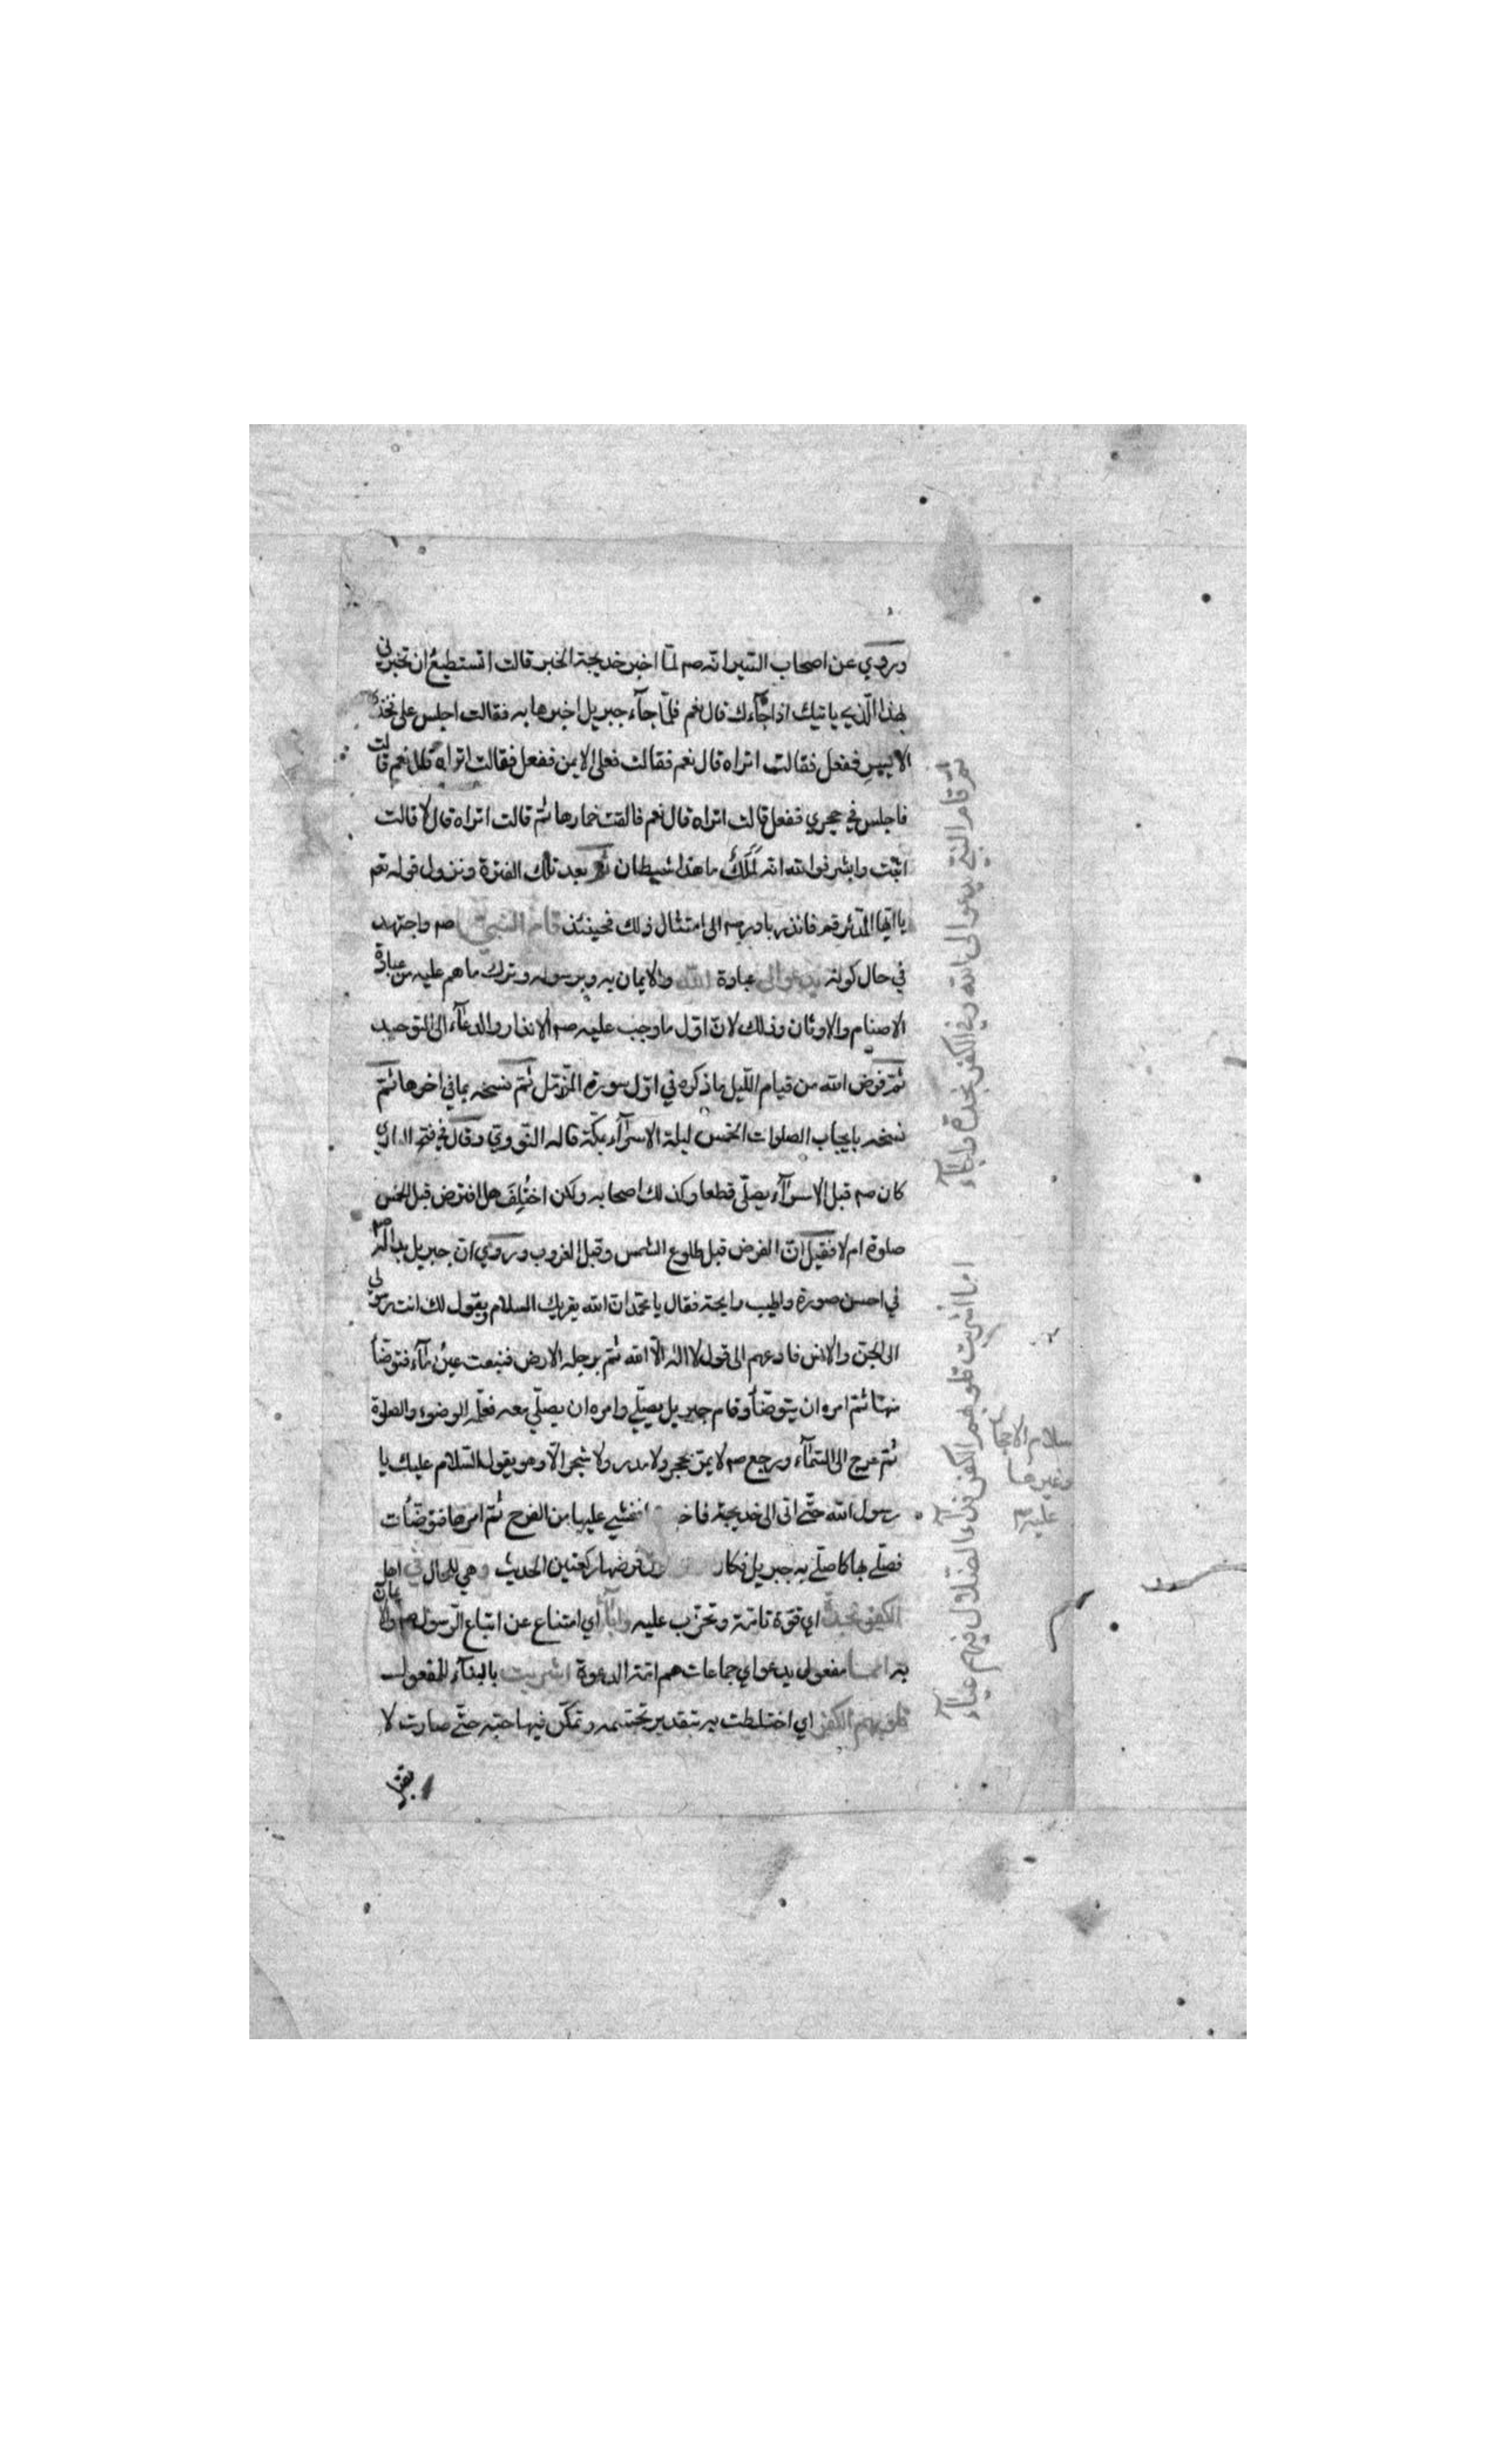 وروي عن اصحاب السير انه صم لمّا اخبر خديجة الخبر قالت اتستطيع ان تخبرني
بهذا الّذي ياتيك اذا جاءك قال نعم فلمّا جآء جبريل اخبرها به فقالت اجلس على فخذي
الايسر ففعل فقالت اتراه قال نعم فقالت فعلى الايمن ففعل فقالت اتراه قال نعم قالت
فاجلس في حجري ففعل قالت اتراه قال نعم فالقت خمارها ثم قالت اتراه قال لا قالت
اثبت وابشر فوالله انه لَمَلَكٌ ما هذا شيطان ثم بعد تلك الفترة ونزول قوله تعم
يا ايّها المدّثر قم فانذر بادر صم الى امتثال ذلك فحينئذ قام النبيّ صم واجتهد
في حال كونه يدعو الى عبادة الله والايمان به وبرسوله وترك ما هم عليه من عبادة
الاصنام والاوثان وذلك لانّ اوّل ما وجب عليه صم الانذار والدعآء الى التوحيد
ثمّ فرض الله من قيام اللّيل ما ذكره في اوّل سورة المزّمّل ثمّ نسخه بما في اخرها ثمّ
نسخه بايجاب الصلوات الخمس ليلة الاسرآء بمكّة قاله النّووي وقال في فتح الباري
كان صم قبل الاسرآء يصلّي قطعا وكذلك اصحابه ولكن اختُلِفَ هل افترض قبل الخمس
صلوة ام لا فقيل انّ الفرض قبل طلوع الشمس وقبل الغروب وروي ان جبريل بدا له صم
في احسن صورة واطيب رايحة فقال يا محمّد انّ الله يقريك السلام ويقول لك انت رسولي
الى الجنّ والانس فادعهم الى قول لا اله الّا الله ثمّ برجله الارض فنبعت عينُ مآء فتوضّأ
منها ثمّ امره ان يتوضّأ وقام جبريل يصلّي وامره ان يصلّي معه فعلّمه الوضوء والصلوة
ثمّ عرج الى السّمآء ورجع صم لا يمرّ بحجر ولا مدر ولا شجر الّا وهو يقول السّلام عليك يا
رسول الله حتّى اتى الى خديجة فاخ فغشي عليها من الفرح ثمّ امرها فتوضّأت
فصلّى بها كما صلّى به جبريل فكان فرضها ركعتين الحديث وهي للحال في اهل
الكفر نجدة اي قوّة تامّة وتحزّب عليه وابآء اي امتناع عن اتباع الرسول صم والايمان
به امما مفعول يدعو اي جماعات هم امّة الدعوة اشربت بالبنآء للمفعول
قلوبهم الكفر اي اختلطت به بتقدير وتمكّن فيها حبّه حتّى صارت لا
ثمّ قام النبيّ يدعو الى الله وفي الكفر نجدة وابآء
امما اشربت قلوبهم الكفر فدآء الضّلال فيهم عيآء
سلام الاحجار
وغيرها
عليه صم